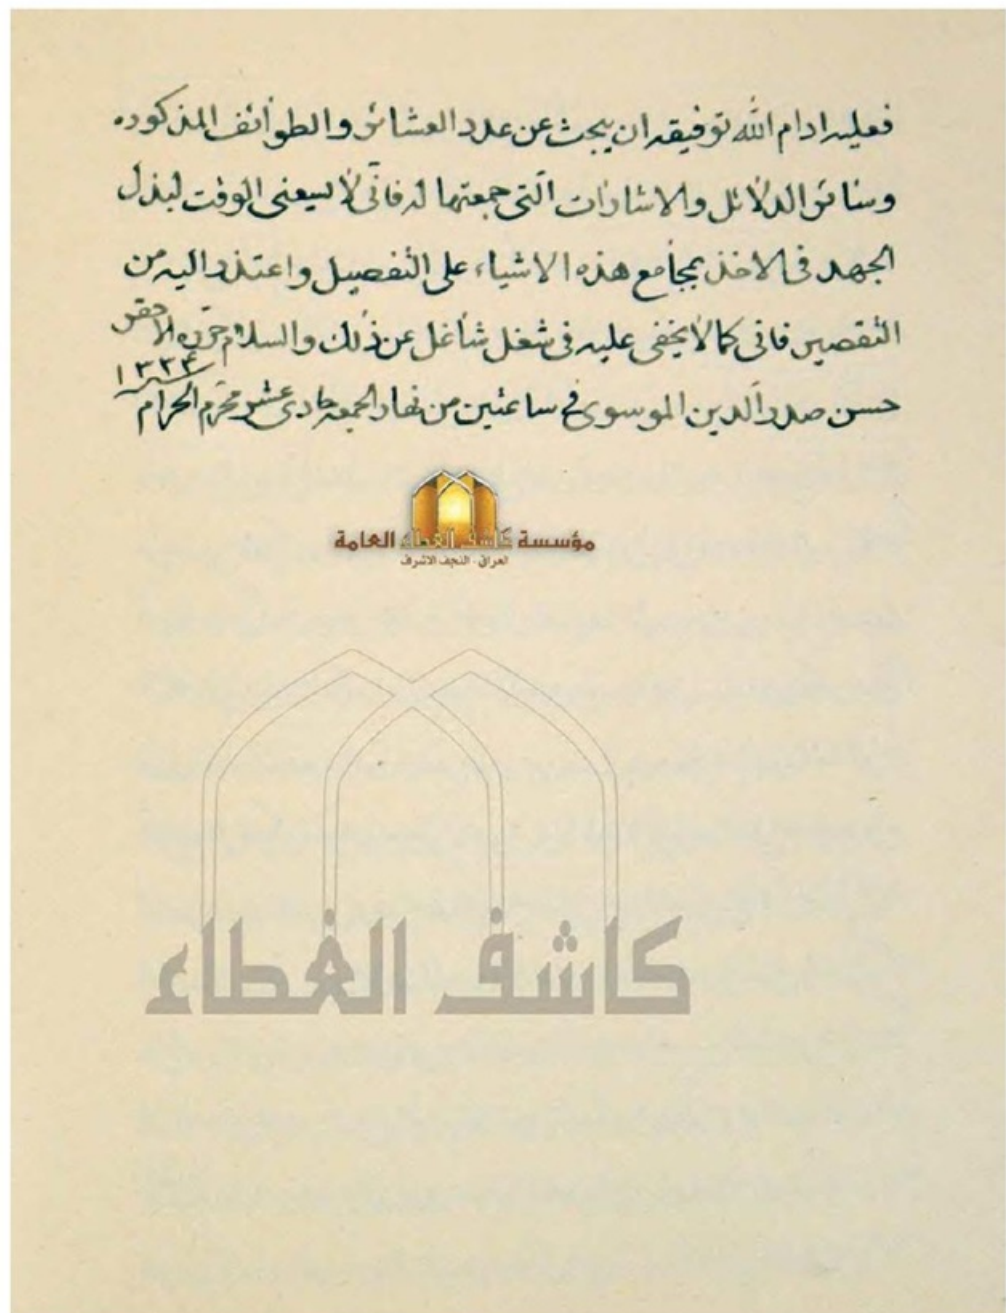 فعليه ادام الله توفيقه ان يبحث عن عدد العشائر والطوائف المذكوره
وسائر الدلائل والاشارات التى جمعتها له فانّى لا يسعنى الوقت لبذل
الجهد فى الاخذ بمجامع هذه الاشياء على التفصيل واعتذر اليه من
التقصير فانى كما لا يخفى عليه فى شغل شاغل عن ذلك والسلام حرّره الاحقر
حسن صدر الدين الموسوى فى ساعتين من نهار الجمعه حادى عشر محرّم الحرام
١٣٣٤
مؤسسة كاشف الغطاء العامة
العراق - النجف الاشرف
كاشف الغطاء